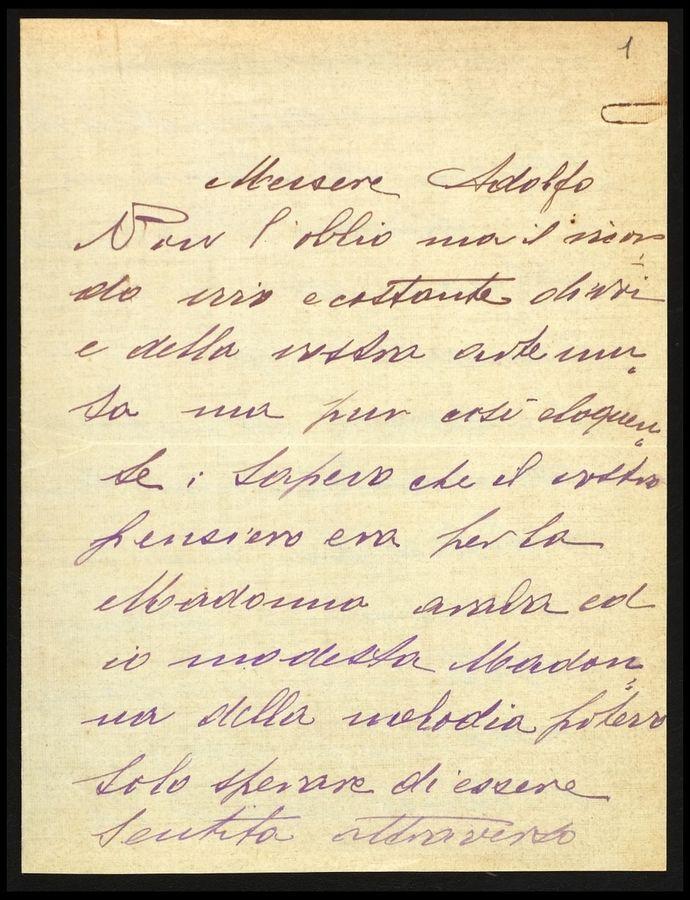 1
Messere Adolfo
Non l'oblio ma il ricor=
do vivo e costante di voi
e della vostra arte mu=
ta ma pur così eloquen=
te; sapevo che il vostro
pensiero era per la
Madonna araba ed
io modesta Madon=
na della melodia potevo
solo sperare di essere
sentita attraverso